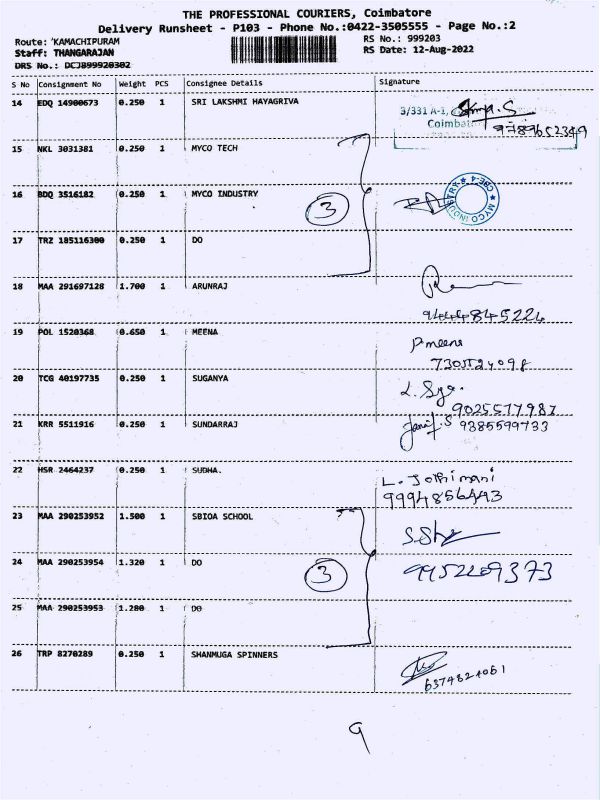 THE PROFESSIONAL COURIERS, Coimbatore
Delivery Runsheet - P103 - Phone No.:0422-3505555 - Page No.:2
Route: 'KAMACHIPURAM RS No.: 999203
Staff: THANGARAJAN RS Date: 12-Aug-2022
DRS No.: DCJ899920302
S No Consignment No Weight PCS Consignee Details Signature
14 EDQ 14900673 0.250 1 SRI LAKSHMI HAYAGRIVA
3/331 A-1,
Coimbat
9789652349
15 NKL 3031381 0.250 1 MYCO TECH
16 BDQ 3516182 0.250 1 MYCO INDUSTRY
3
MYCO INDUSTRY ★ CBE-4 ★
17 TRZ 185116300 0.250 1 DO
18 MAA 291697128 1.700 1 ARUNRAJ
9444845224
19 POL 1520368 0.650 1 MEENA
P.meena
7305524098
20 TCG 40197735 0.250 1 SUGANYA
9025577987
21 KRR 5511916 0.250 1 SUNDARRAJ
9385599733
22 HSR 2464237 0.250 1 SUDHA.
L. Jothimani
9994856493
23 MAA 290253952 1.500 1 SBIOA SCHOOL
24 MAA 290253954 1.320 1 DO
3
9952209373
25 MAA 290253953 1.280 1 DO
26 TRP 8270289 0.250 1 SHANMUGA SPINNERS
6374821061
9